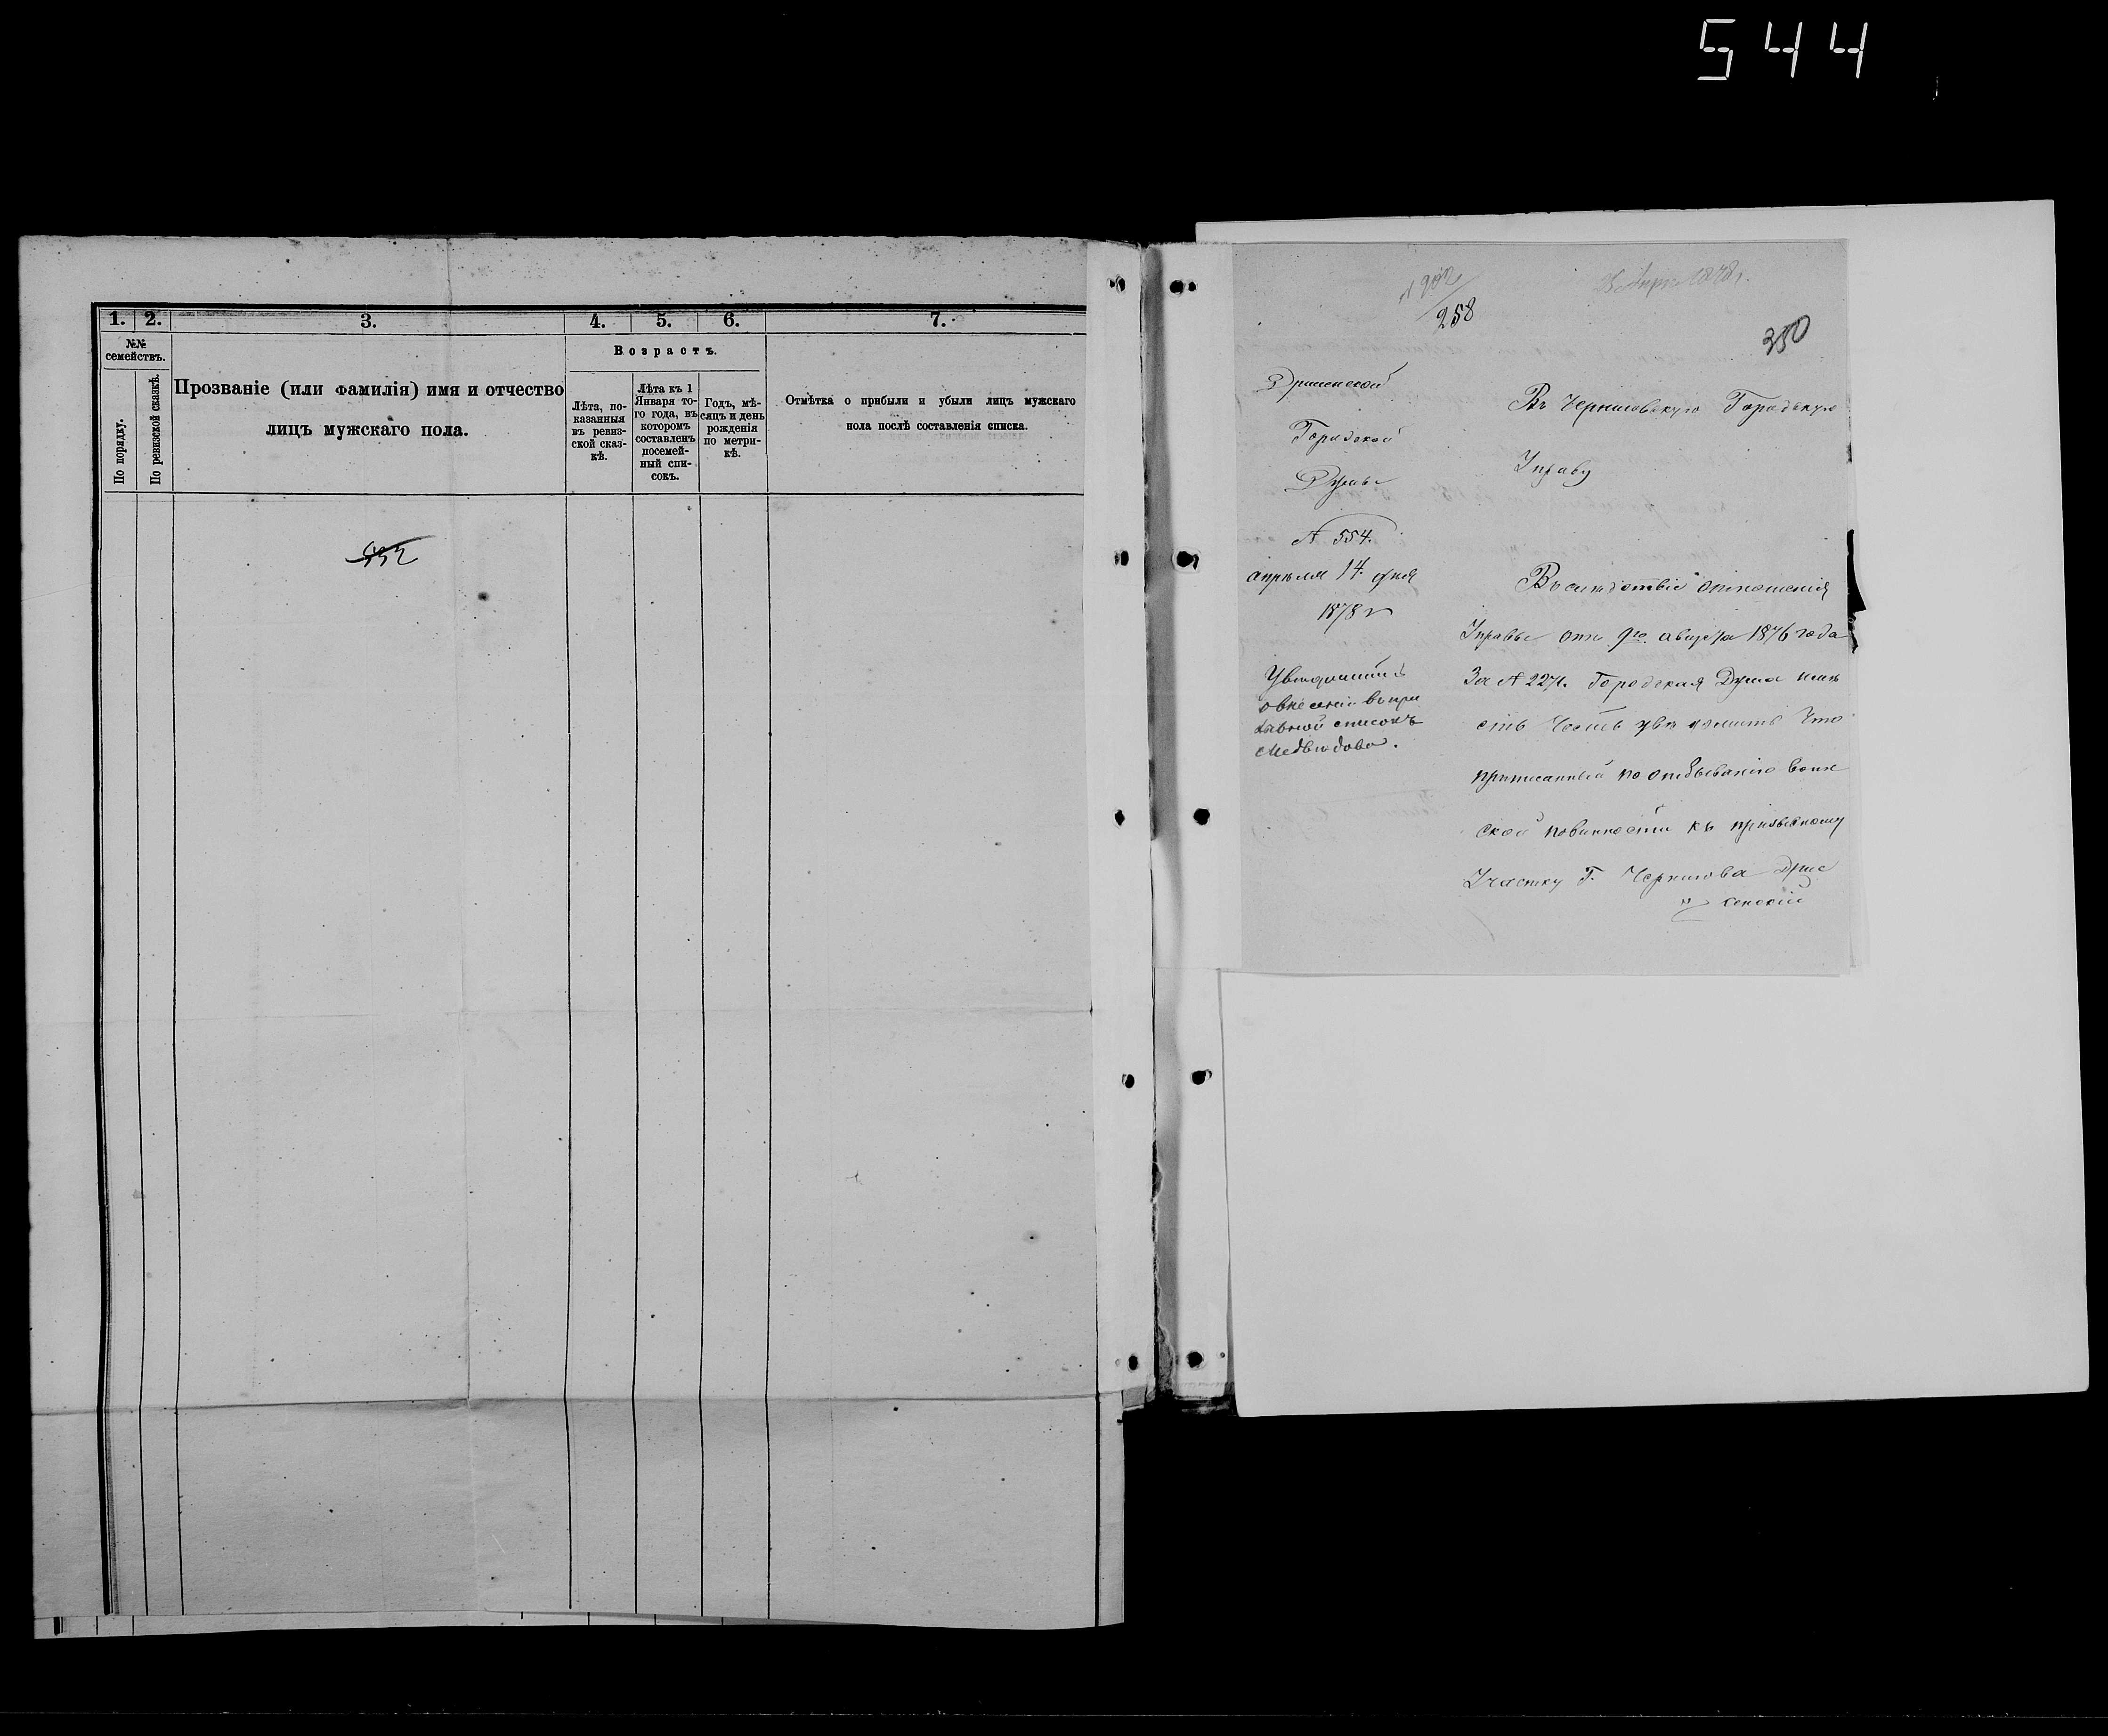 544
1. 2. 3. 4. 5. 6. 7.
№№ семействъ.
По порядку.
По ревизской сказкѣ.
Прозваніе (или фамилія) имя и отчество
лицъ мужскаго пола.
Возрастъ.
Лѣта, по-
казанныя
въ ревиз-
ской сказ-
кѣ.
Лѣта къ 1
Января то-
го года, въ
котором
составленъ
посемей-
ный спи-
сокъ.
Годъ, мѣ-
сяцъ и день
рожденія
по метри-
кѣ.
Отмѣтка о прибыли и убыли лицъ мужскаго
пола послѣ составленія списка.
532
258
1878 г.
350
Дрисенской
Городской
Думы
№ 554.
апрѣля 14 дня
1878 г
Увѣдомить
о внесеніи въ при
зывной списокъ
Медвѣдова.
Въ Черниговскую Городскую
Управу
Въ слѣдствіе отношенія
Управы отъ 9го августа 1876 года
За № 2271. Городская Дума имѣ
етъ честь увѣдомить что
приписанный по отбыванію воин
ской повинности къ призывному
Участку Г. Чернигова Дрис
сенскій